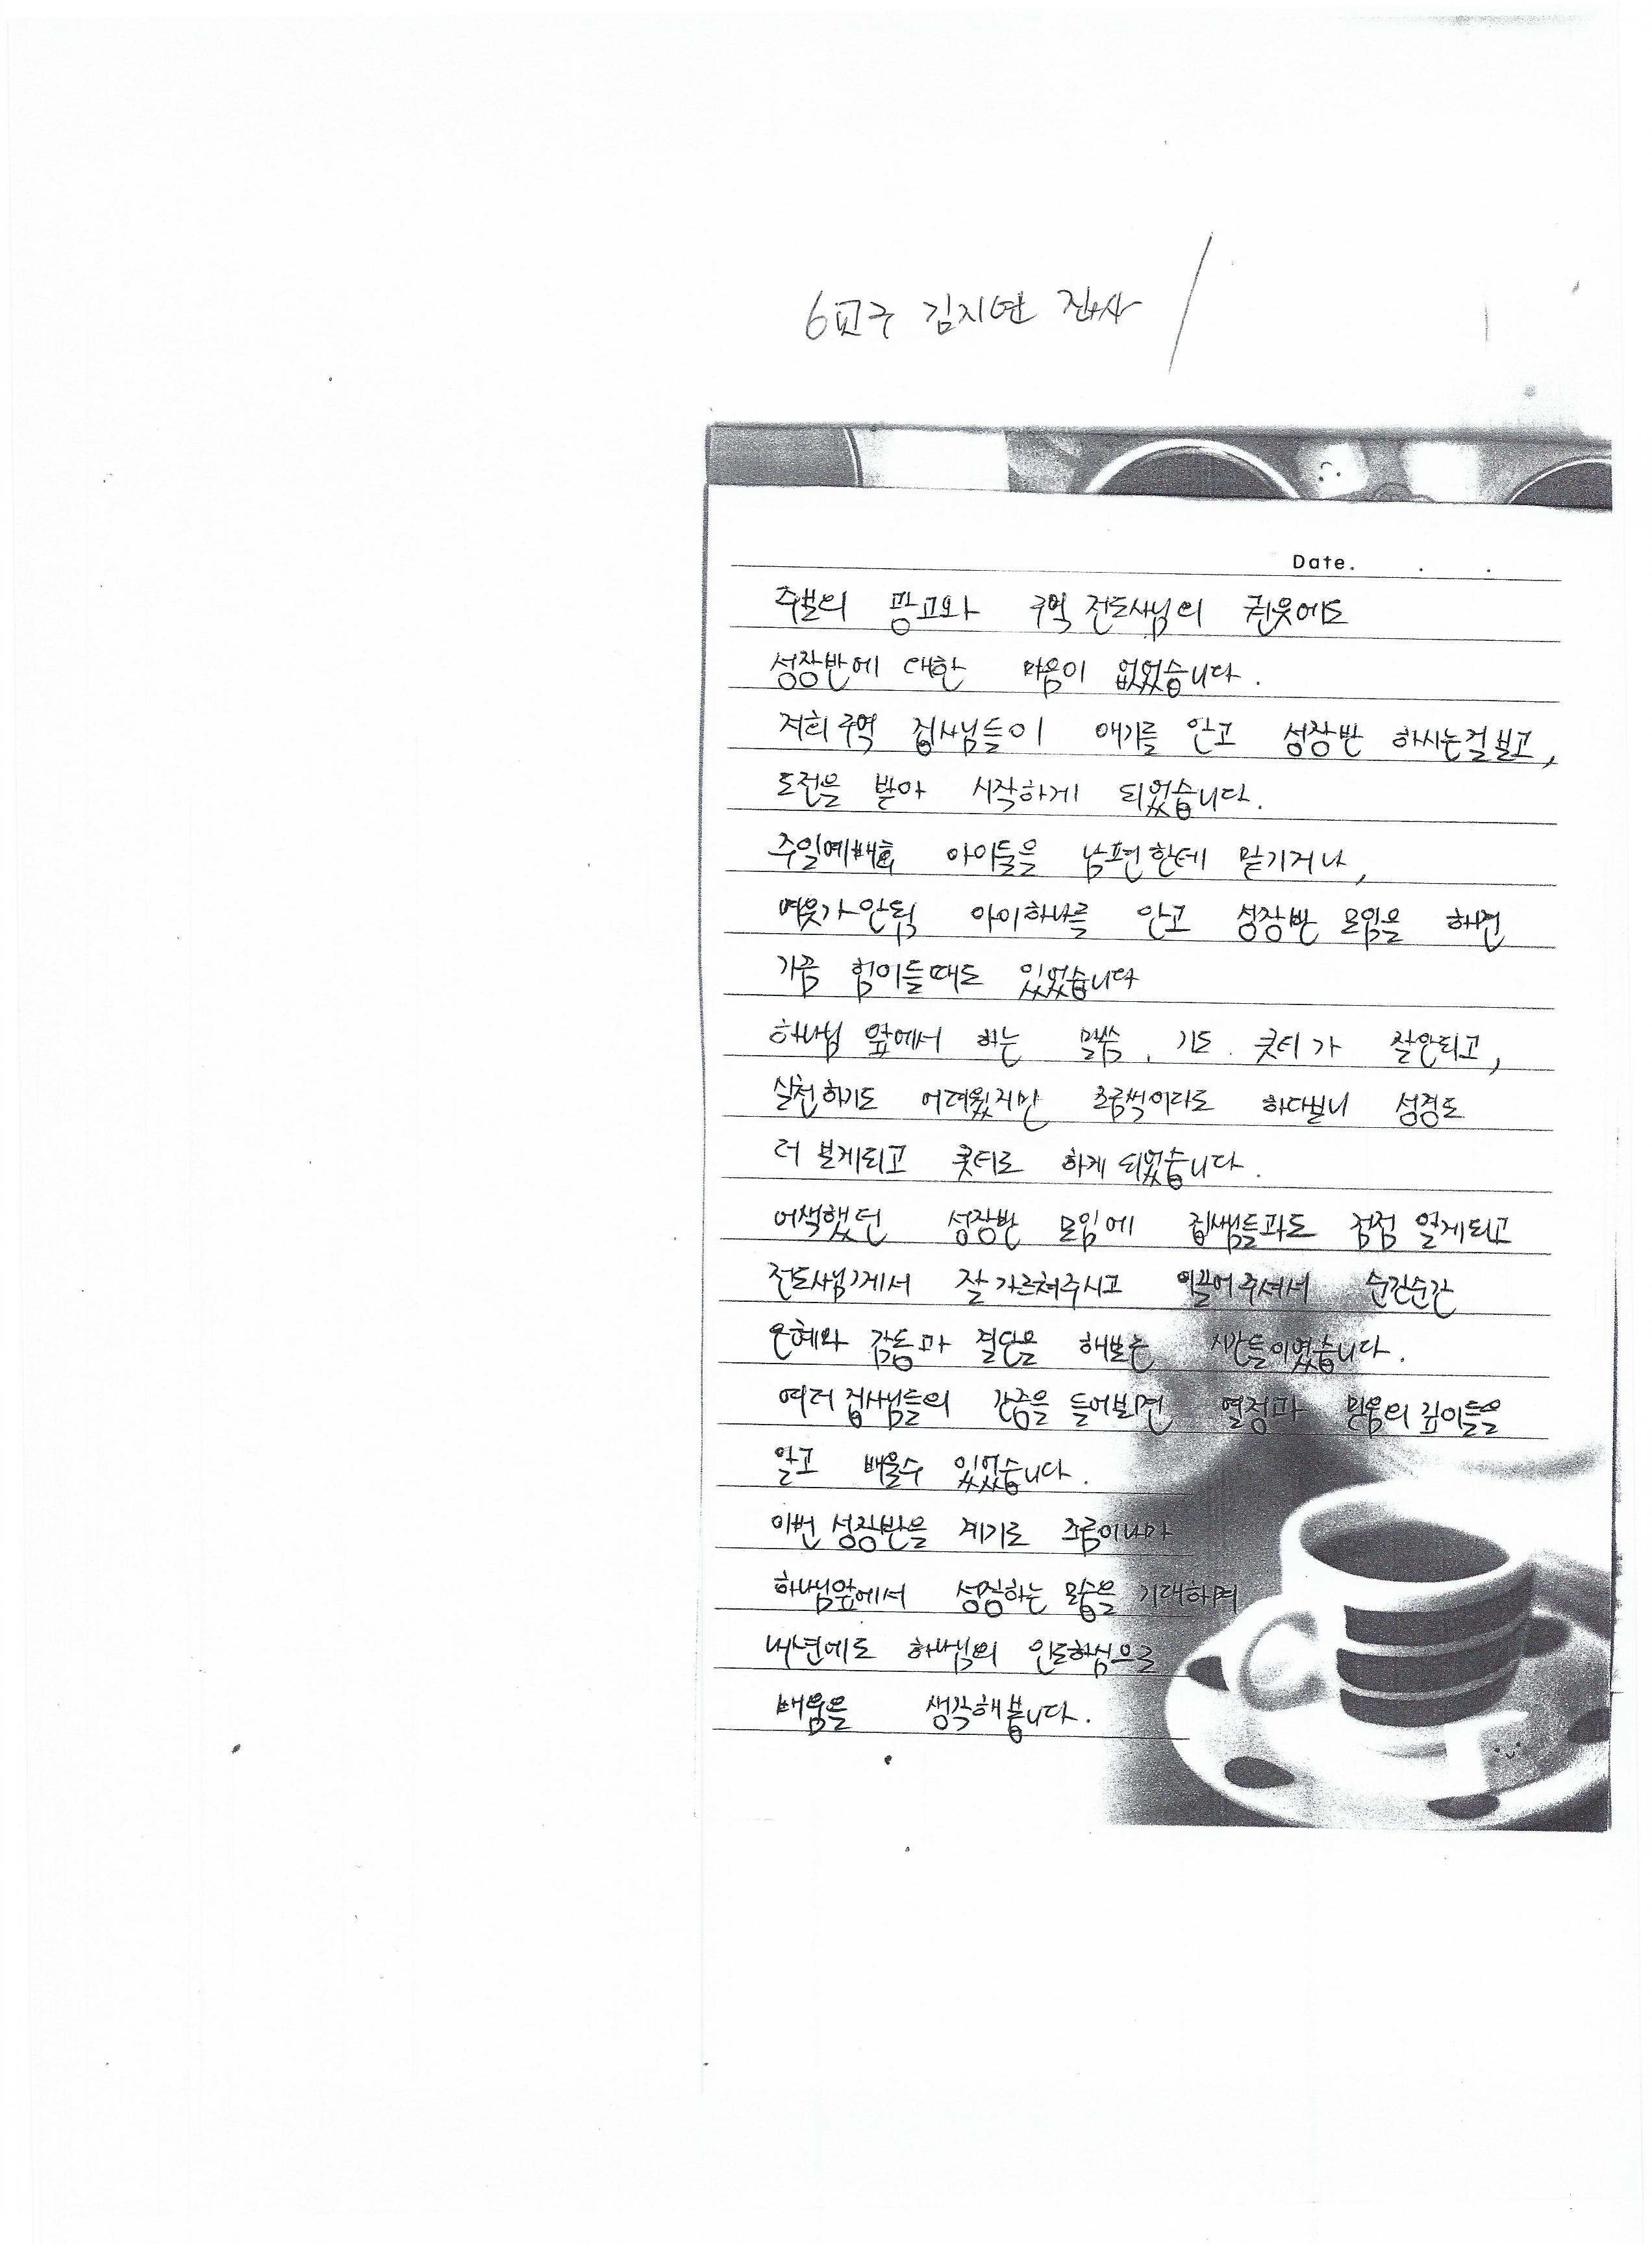 6교구 김지연 집사
Date. . .
주보의 광고와 구역 전도사님의 권유에도
성장반에 대한 마음이 없었습니다.
저희 구역 집사님들이 애기를 안고 성장반 하시는걸 보고,
도전을 받아 시작하게 되었습니다.
주일예배후 아이들을 남편한테 맡기거나,
여윳가 안됨 아이하나를 안고 성장반 모임을 하면
가끔 힘이들때도 있었습니다
하나님 앞에서 하는 말씀, 기도. 큐티가 잘안되고,
실천하기도 어려웠지만 조금씩이라도 하다보니 성경도
더 보게되고 큐티도 하게 되었습니다.
어색했던 성장반 모임에 집사님들과도 점점 알게되고
전도사님께서 잘 가르쳐주시고 이끌어 주셔서 순간순간
은혜와 감동과 결단을 해보는 시간들이었습니다.
여러 집사님들의 간증을 들어보면 열정과 믿음의 깊이들을
알고 배울수 있었습니다.
이번 성장반을 계기로 조금이나마
하나님앞에서 성장하는 모습을 기대하며
내년에도 하나님의 인도하심으로
배움을 생각해봅니다.